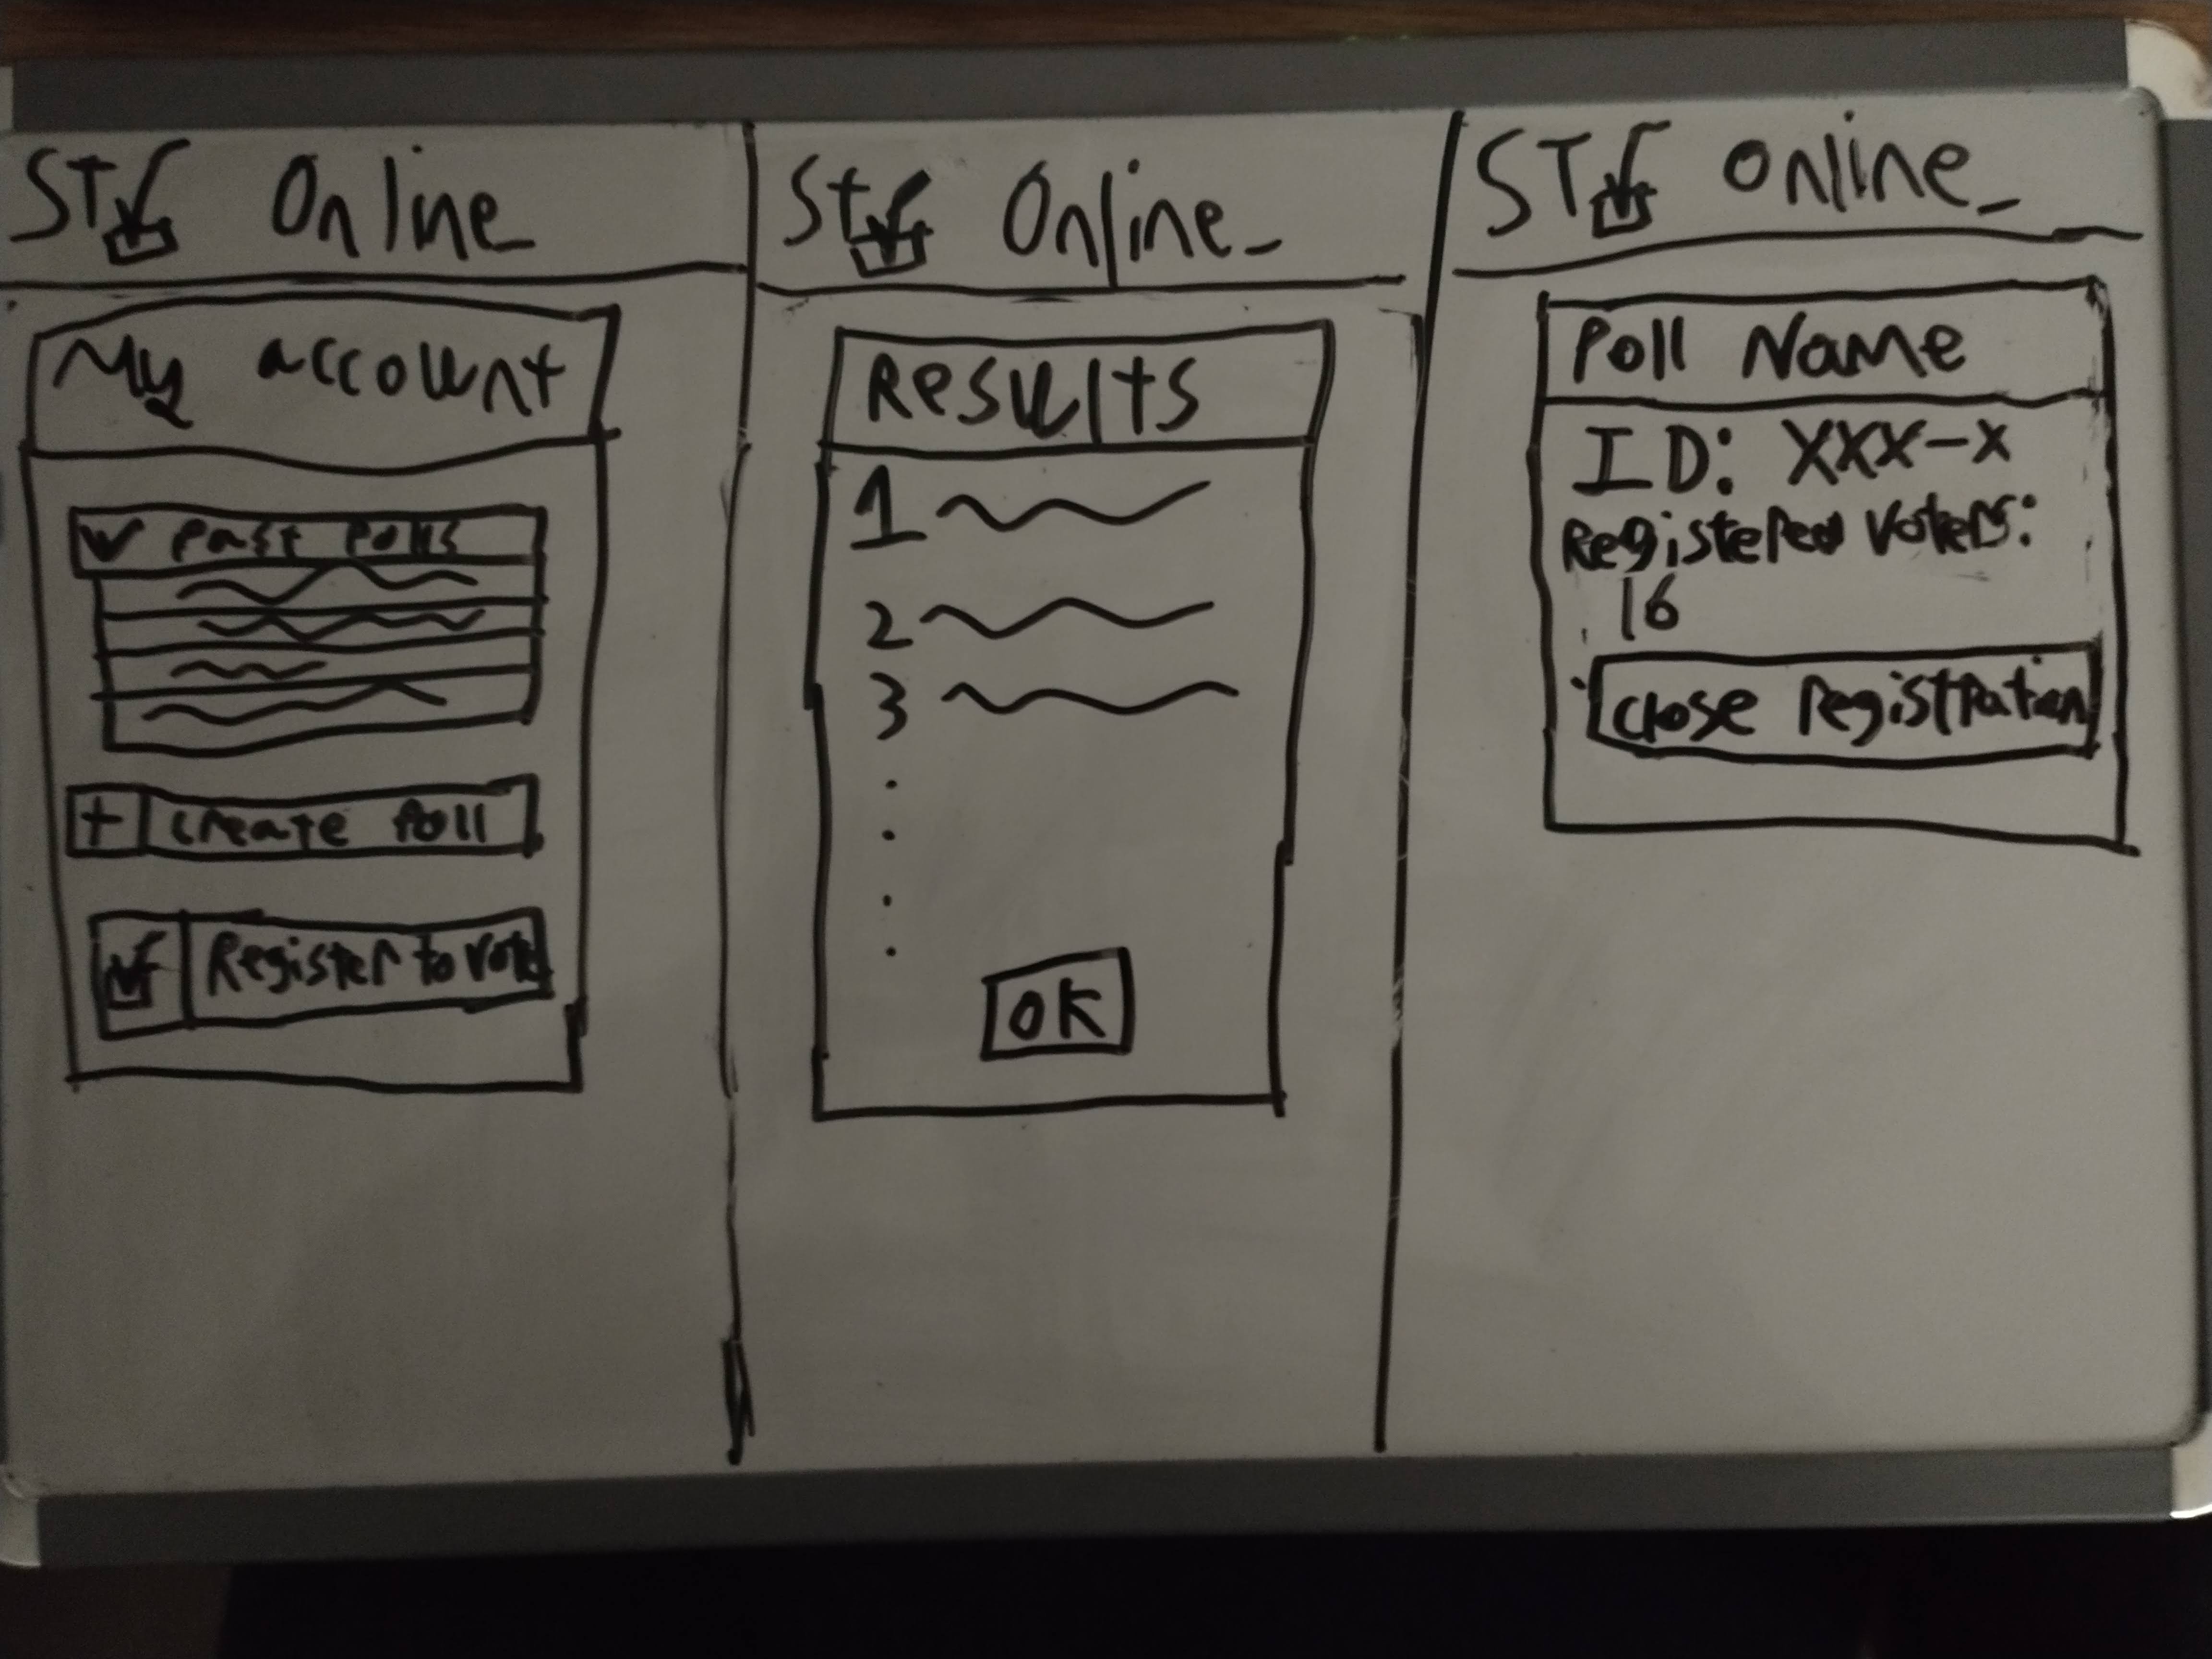 ST Online
My account
Past Polls
+ Create Poll
Register to vote
St Online
Results
1
2
3
OK
ST Online
Poll Name
ID: XXX-X
Registered Voters:
16
Close Registration